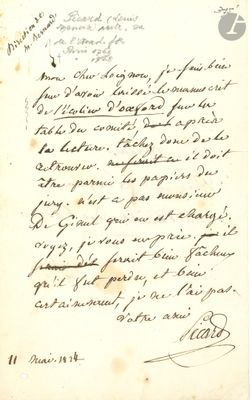 Picard (Louis
mon cher Loignon, je suis bien
sur d'avoir laissé le manuscrit
de l'écolier d'oxford sur la
table du comité, après
la lecture. tachez donc de le
retrouver. il doit
être parmi les papiers du
jury. n'est ce pas monsieur
De Ginel qui en est chargé.
voyez, je vous en prie. il
serait bien facheux
qu'il fut perdu, et bien
certainement, je ne l'ai pas.
votre ami
Picard
11 mai. 1824